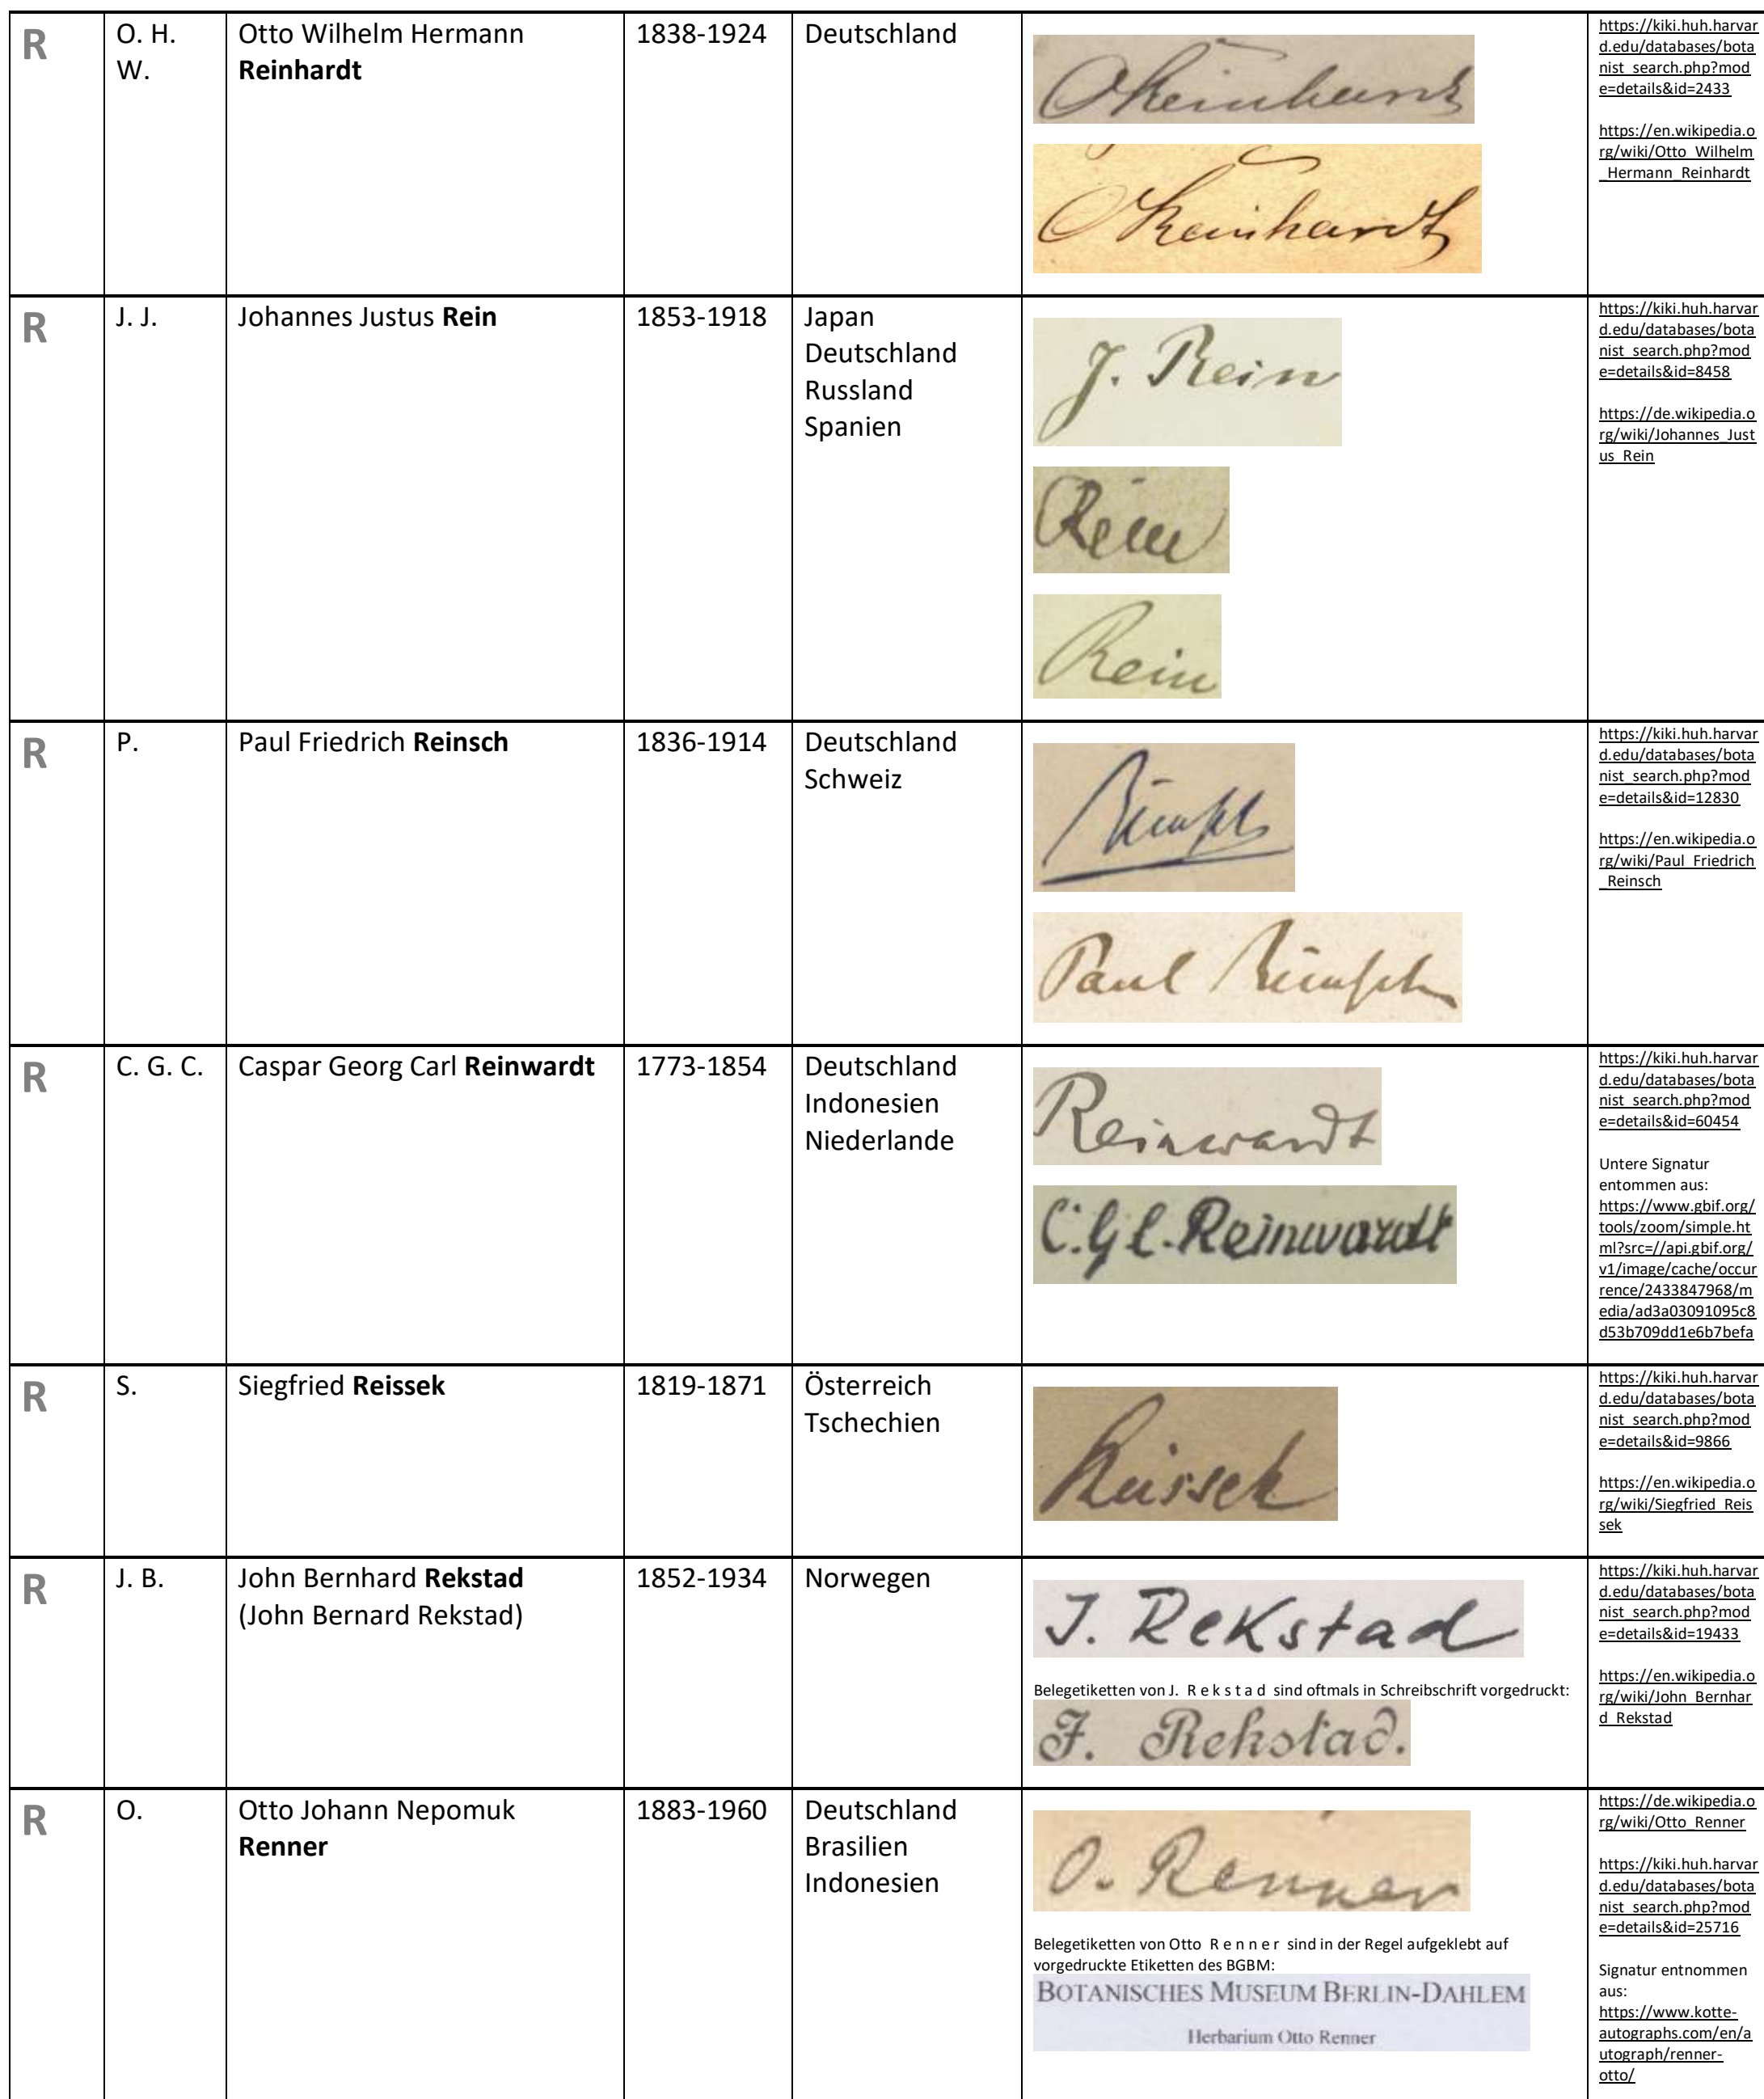 R
O. H.
W.
Otto Wilhelm Hermann
Reinhardt
1838-1924
Deutschland
OReinhardt
OReinhardt
https://kiki.huh.harvar
d.edu/databases/bota
nist_search.php?mod
e=details&id=2433
https://en.wikipedia.o
rg/wiki/Otto_Wilhelm
_Hermann_Reinhardt
R
J. J.
Johannes Justus Rein
1853-1918
Japan
Deutschland
Russland
Spanien
J. Rein
Rein
Rein
https://kiki.huh.harvar
d.edu/databases/bota
nist_search.php?mod
e=details&id=8458
https://de.wikipedia.o
rg/wiki/Johannes_Just
us_Rein
R
P.
Paul Friedrich Reinsch
1836-1914
Deutschland
Schweiz
Reinsch
Paul Reinsch
https://kiki.huh.harvar
d.edu/databases/bota
nist_search.php?mod
e=details&id=12830
https://en.wikipedia.o
rg/wiki/Paul_Friedrich
_Reinsch
R
C. G. C.
Caspar Georg Carl Reinwardt
1773-1854
Deutschland
Indonesien
Niederlande
Reinwardt
C.G.C. Reinwardt
https://kiki.huh.harvar
d.edu/databases/bota
nist_search.php?mod
e=details&id=60454
Untere Signatur
entommen aus:
https://www.gbif.org/
tools/zoom/simple.ht
ml?src=//api.gbif.org/
v1/image/cache/occur
rence/2433847968/m
edia/ad3a03091095c8
d53b709dd1e6b7befa
R
S.
Siegfried Reissek
1819-1871
Österreich
Tschechien
Reissek
https://kiki.huh.harvar
d.edu/databases/bota
nist_search.php?mod
e=details&id=9866
https://en.wikipedia.o
rg/wiki/Siegfried_Reis
sek
R
J. B.
John Bernhard Rekstad
(John Bernard Rekstad)
1852-1934
Norwegen
J. Rekstad
Belegetiketten von J. R e k s t a d sind oftmals in Schreibschrift vorgedruckt:
J. Rekstad.
https://kiki.huh.harvar
d.edu/databases/bota
nist_search.php?mod
e=details&id=19433
https://en.wikipedia.o
rg/wiki/John_Bernhar
d_Rekstad
R
O.
Otto Johann Nepomuk
Renner
1883-1960
Deutschland
Brasilien
Indonesien
O. Renner
Belegetiketten von Otto R e n n e r sind in der Regel aufgeklebt auf
vorgedruckte Etiketten des BGBM:
BOTANISCHES MUSEUM BERLIN-DAHLEM
Herbarium Otto Renner
https://de.wikipedia.o
rg/wiki/Otto_Renner
https://kiki.huh.harvar
d.edu/databases/bota
nist_search.php?mod
e=details&id=25716
Signatur entnommen
aus:
https://www.kotte-
autographs.com/en/a
utograph/renner-
otto/